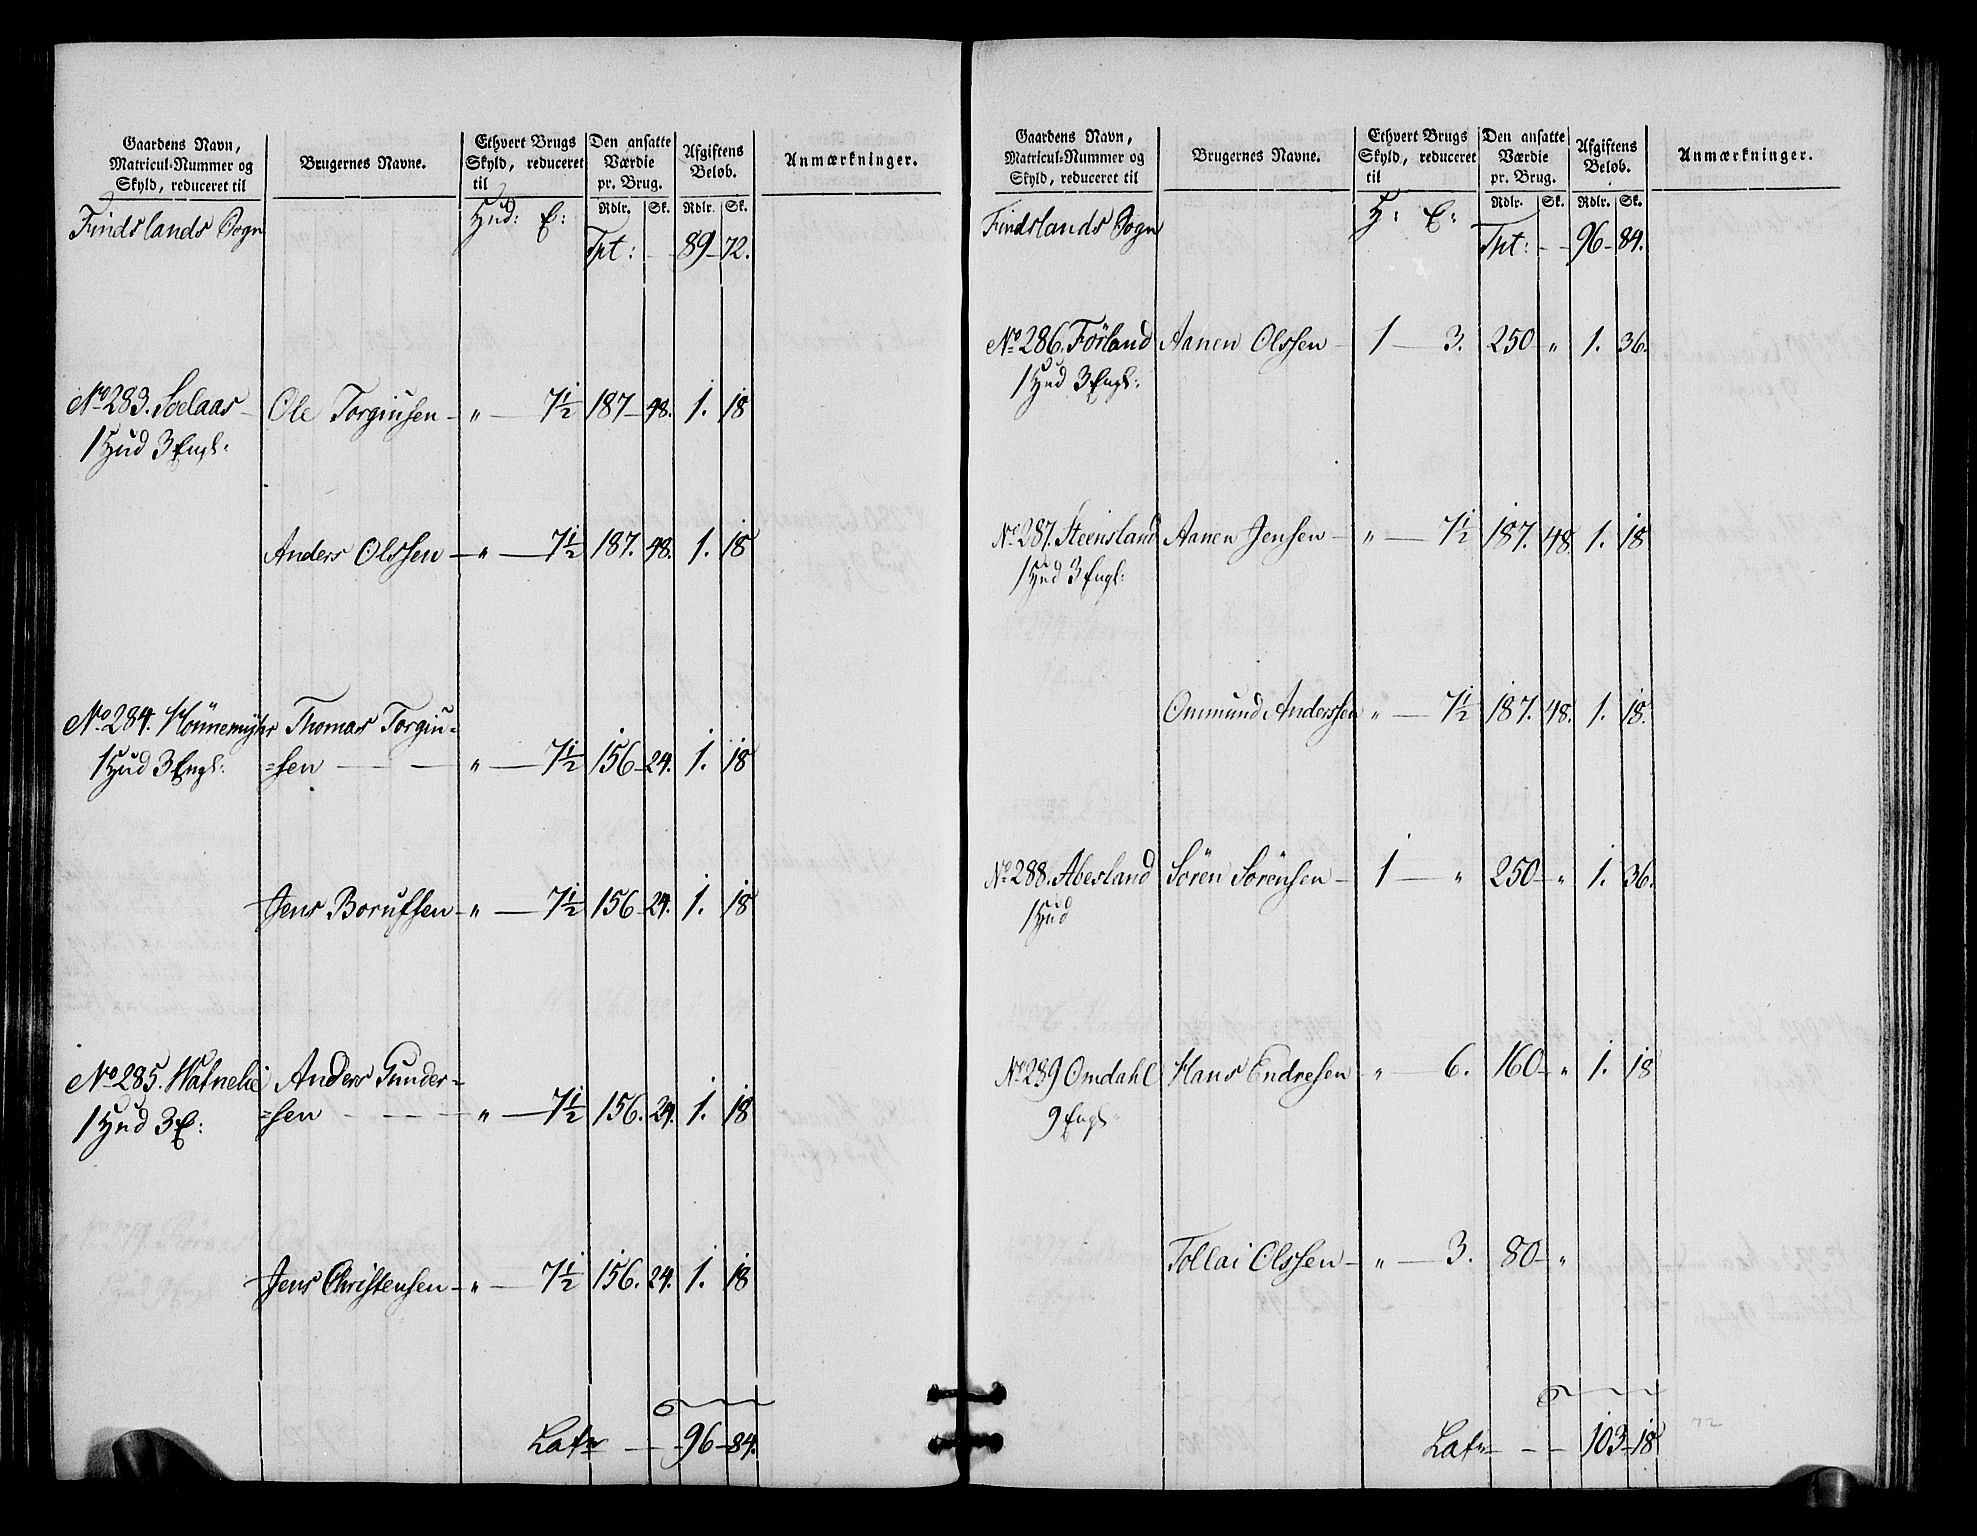 Gaardens Navn, Matricul-Nummer og Skyld, reduceret til | Brugernes Navne. | Ethvert Brugs Skyld, reduceret til | Den ansatte Værdie pr. Brug. | Afgiftens Beløb. | Anmærkninger.
Rdlr. Sk. Rdlr. Sk.
Findslands Sogn Hud: E:
Tpt: 89 - 72.
No 283. Soelaas - Ole Torgiusen - " - 7½ 187 - 48. 1. 18
1 Hud 3 Engl:
Anders Olssen - " - 7½ 187. 48. 1. 18
No 284. Hönnemyhr Thomas Torgiu=
1 Hud 3 Engl: =sen - " - 7½ 156 - 24. 1. 18
Jens Borufsen - " - 7½ 156 - 24. 1. 18
No 285. Watnelie Anders Gunder=
1 Hud 3 E: =sen - " - 7½ 156. 24. 1. 18
Jens Christensen - " - 7½ 156. 24. 1. 18
Latr - 96 - 84.
Gaardens Navn, Matricul-Nummer og Skyld, reduceret til | Brugernes Navne. | Ethvert Brugs Skyld, reduceret til | Den ansatte Værdie pr. Brug. | Afgiftens Beløb. | Anmærkninger.
Rdlr. Sk. Rdlr. Sk.
Findslands Sogn H: E:
Tpt: - 96 - 84.
No 286. Förland Aanen Olssen - 1 - 3. 250 - " 1. 36.
1 Hud 3 Engl:
No 287. Steensland Aanen Jensen - " - 7½ 187. 48. 1. 18
1 Hud 3 Engl:
Ommund Anderssen " - 7½ 187. 48. 1. 18.
No 288. Abesland Sören Sörensen - 1 - " 250 - " 1. 36.
1 Hud
No 289 Omdahl Hans Endresen " - 6. 160 - " 1. 18
9 Engl
Tollai Olssen - " - 3. 80 - "
Latr - - 103 - 18